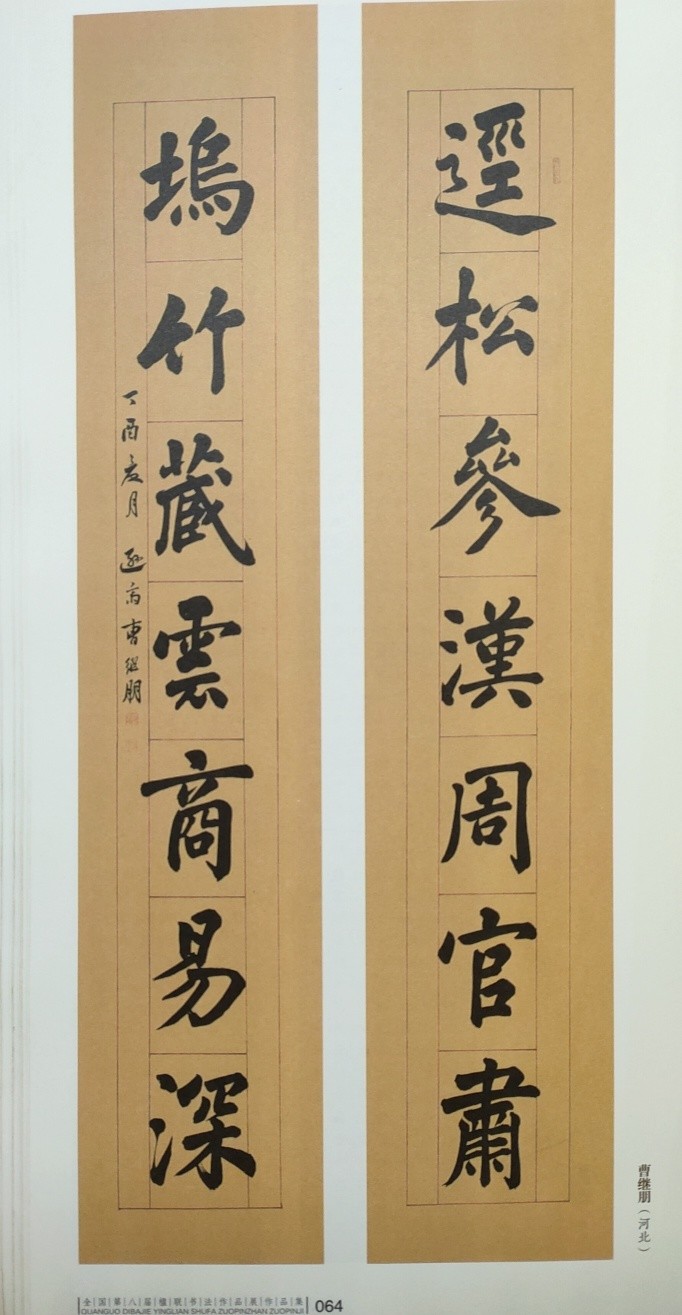 逕松參漢周官肅
塢竹藏雲商易深
丁酉夏月 曹继朋
曹继朋（河北）
全|国|第|八|届|楹|联|书|法|作|品|展|作|品|集
QUANGUO DIBAJIE YINGLIAN SHUFA ZUOPINZHAN ZUOPINJI
064